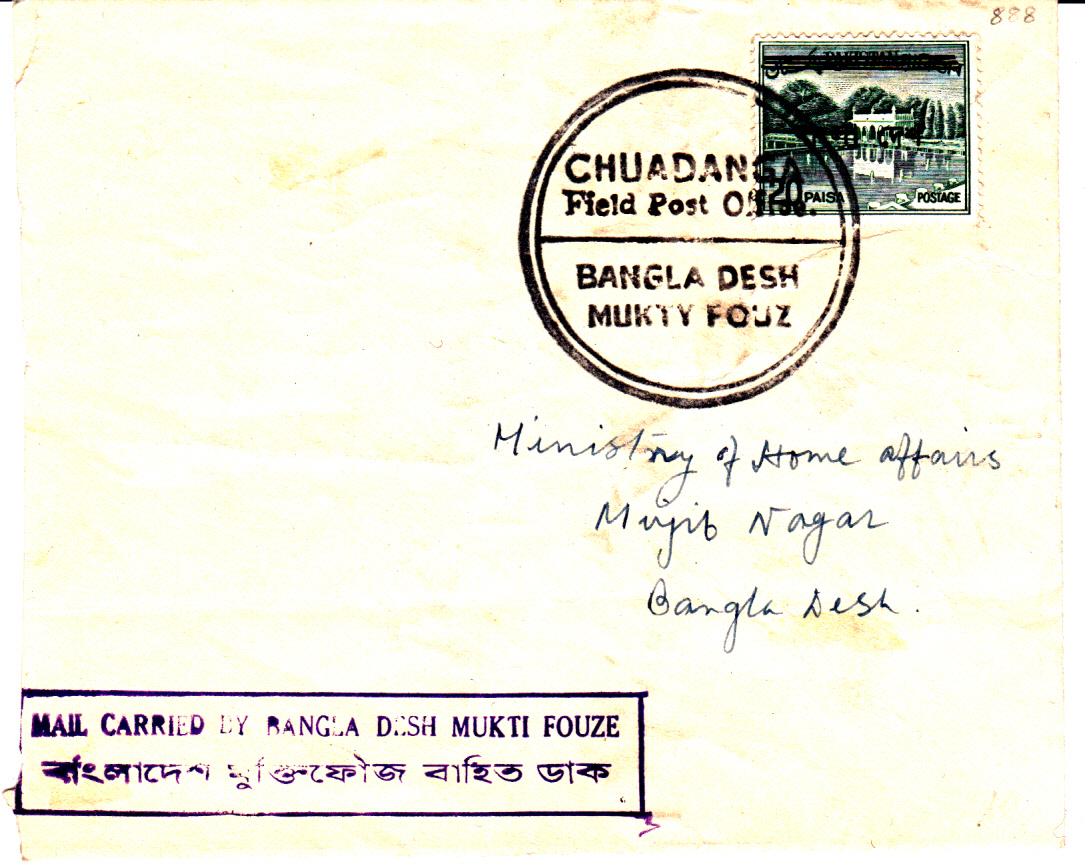 888
CHUADANGA
Field Post Office.
20 PAISA POSTAGE
BANGLA DESH
MUKTY FOUZ
Ministry of Home affairs
Mujib Nagar
Bangla Desh.
MAIL CARRIED BY BANGLA DESH MUKTI FOUZE
বাংলাদেশ মুক্তিফৌজ বাহিত ডাক